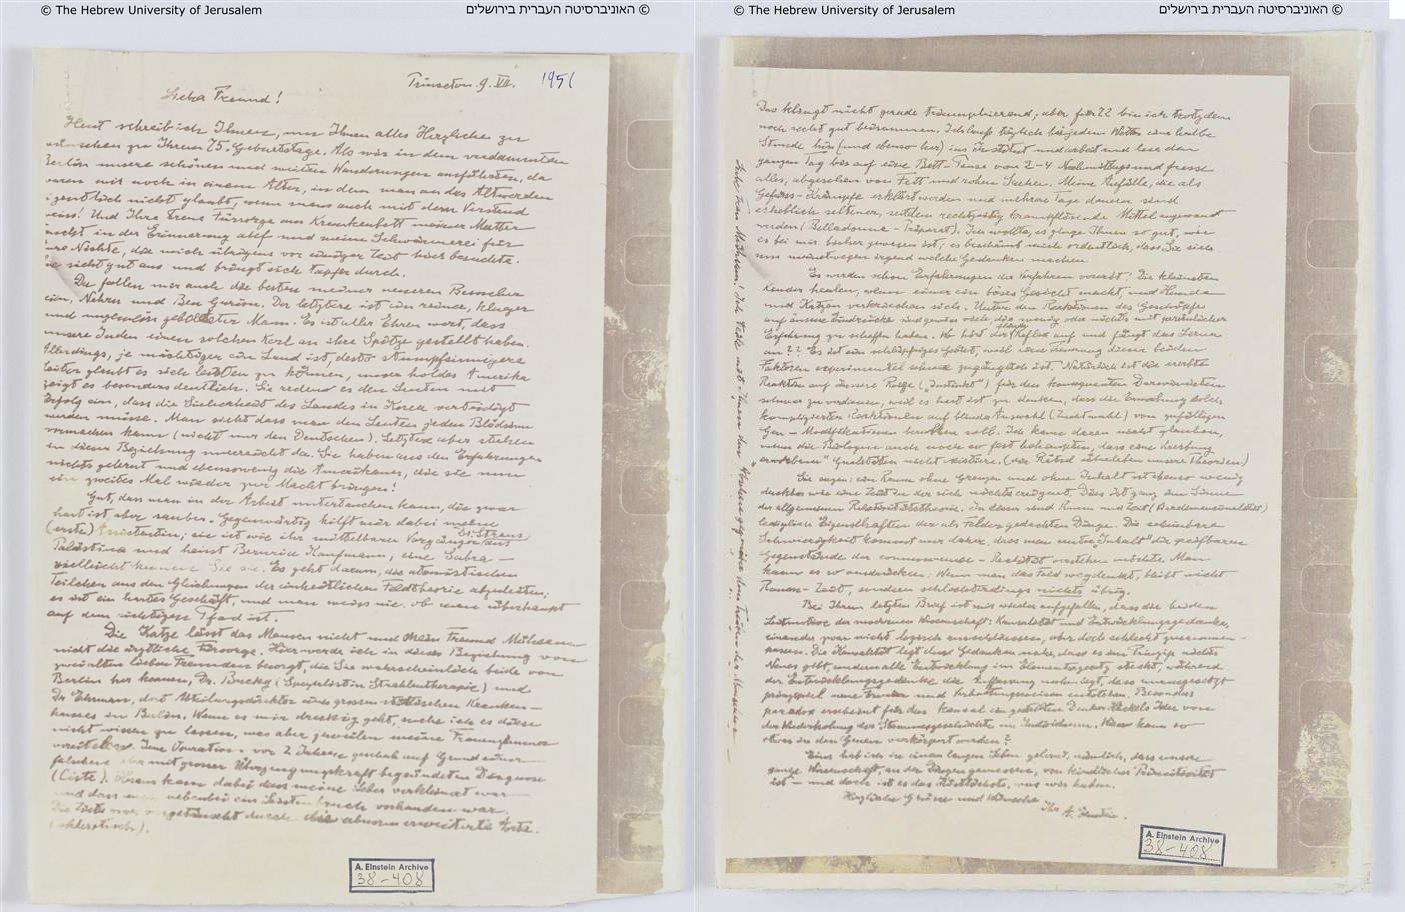 © The Hebrew University of Jerusalem
© האוניברסיטה העברית בירושלים
Princeton. 9. VII. 1951
Lieber Freund!
Heut schreib ich Ihnen, um Ihnen alles Herzliche zu
wünschen zu Ihrem 75. Geburtstage. Als wir in dem verdammten
Berlin unsere schönen und weiten Wanderungen ausführten, da
waren wir noch in einem Alter, in dem man an das Altwerden
eigentlich nicht glaubt, wenn mans auch mit dem Verstand
weiss. Und Ihre treue Fürsorge am Krankenbett meiner Mutter
in der Erinnerung und meine Schwärmerei für
Ihre Nichte, die mich übrigens vor einiger Zeit hier besuchte.
Sie sieht gut aus und bringt sich tapfer durch.
Da fallen mir auch die besten meiner neueren Besucher
ein, Nehru und Ben Gurion. Der letztere ist ein feiner, kluger
und ungemein gebildeter Mann. Es ist aller Ehren wert, dass
unsere Juden einen solchen Kerl an ihre Spitze gestellt haben.
Allerdings, je mächtiger ein Land ist, desto stumpfsinnigere
Leiter glaubt es sich leisten zu können, unser holdes Amerika
zeigt es besonders deutlich. Sie reden es den Leuten mit
Erfolg ein, dass die Sicherheit des Landes in Korea verteidigt
werden müsse. Man sieht dass man den Leuten jeden Blödsinn
vormachen kann (nicht nur den Deutschen). Letztere aber stehen
in dieser Beziehung unerreicht da. Sie haben aus den Erfahrungen
nichts gelernt und ebensowenig die Amerikaner, die sie nun
ein zweites Mal wieder zur Macht bringen!
Gut, dass man in der Arbeit untertauchen kann, die zwar
hart ist aber sauber. Gegenwärtig hilft mir dabei meine
(erste) Assistentin; sie ist wie ihr mittelbarer Vorgänger Straus aus
Palästina und heisst Bernria Kaufmann, eine Sabra –
vielleicht kennen Sie sie. Es geht darum, die atomistischen
Teilchen aus den Gleichungen der einheitlichen Feldtheorie abzuleiten;
es ist ein hartes Geschäft, und man weiss nie, ob man überhaupt
auf dem richtigen Pfad ist.
Die Katze lässt das Mausen nicht und mein Freund Mühsam
nicht die ärztliche Fürsorge. Hier werde ich in dieser Beziehung von
zwei alten lieben Freunden besorgt, die Sie wahrscheinlich beide von
Berlin her kennen, Dr. Bucky (Spezialist in Strahlentherapie) und
Dr Ehrmann, dort Abteilungsdirektor eines grossen städtischen Kranken-
hauses in Berlin. Wenn es mir dreckig geht, suche ich es diese
nicht wissen zu lassen, was aber zuweilen meine Frauenzimmer
vereiteln. Jene Operation vor 2 Jahren geschah auf Grund einer
falschen aber mit grosser Überzeugungskraft begründeten Diagnose
(Ciste). kam dabei dass meine Leber verkleinert war
und dass nebenbei ein Leistenbruch vorhanden war.
Die Ciste war vorgetäuscht durch die abnorm erweiterte Aorta.
(sklerotisch).
A. Einstein Archive
38-408
© The Hebrew University of Jerusalem
© האוניברסיטה העברית בירושלים
Das klingt nicht gerade triumphierend, aber für 72 bin ich trotzdem
noch recht gut beisammen. Ich laufe täglich bei jedem Wetter eine halbe
Stunde hin (und ebenso her) ins Institut und arbeit und lese den
ganzen Tag bis auf eine Bett-Pause von 2–4 Nachmittags und fresse
alles, abgesehen von Fett und rohen Sachen. Meine Anfälle, die als
Gefäss-Krämpfe erklärt werden und mehrere Tage dauern sind
erheblich seltener, seitdem rechtzeitig krampflösende Mittel angewandt
werden (Belladonna-Präparat). Ich wollte, es ginge Ihnen so gut, wie
es bei mir bisher gewesen ist; es beschämt mich ordentlich, dass Sie sich
um meinetwegen irgend welche Gedanken machen.
Es werden schon Erfahrungen der Vorfahren vererbt! Die kleinsten
Kinder heulen, wenn einer ein böses Gesicht macht, und Hunde
und Katzen verkriechen sich. Unter den Reaktionen des Geschöpfs
auf äussere Eindrücke sind gewiss viele, die wenig oder nichts mit persönlicher
Erfahrung zu schaffen haben. Wo hört der Reflex auf und fängt das Lernen
an?? Es ist ein schlüpfriges Gebiet, weil eine Trennung dieser beiden
Faktoren experimentell schwer zugänglich ist. Natürlich ist die ererbte
Reaktion auf äussere Reize („Instinkt“) für den konsequenten Darwinisten
schwer zu verdauen, weil es hart ist zu denken, dass die Erwerbung solch
komplizierter Reaktionen auf blinder Auswahl (Zuchtwahl) von zufälligen
Gen-Modifikationen beruhen soll. Ich kann daran nicht glauben,
wenn die Biologen auch noch so fest behaupten, dass eine Vererbung
„erworbener“ Qualitäten nicht existiere. (Die Rätsel überleben unsere Theorien.)
Sie sagen: ein Raum ohne Grenzen und ohne Inhalt ist ebenso wenig
denkbar wie eine Zeit in der sich nichts ereignet. Dies ist ganz im Sinne
der allgemeinen Relativitätstheorie. In dieser sind Raum und Zeit (Vierdimensionalität)
lediglich Eigenschaften der als Felder gedachten Dinge. Die scheinbare
Schwierigkeit kommt nur daher, dass man unter „Inhalt“ die greifbaren
Gegenstände der common sense-Realität verstehen möchte. Man
kann es so ausdrücken: Wenn man das Feld wegdenkt, bleibt nicht
Raum-Zeit, sondern schlechterdings nichts übrig.
Bei Ihrem letzten Brief ist mir wieder aufgefallen, dass die beiden
Leitmotive der modernen Wissenschaft: Kausalität und Entwicklungsgedanke,
einander zwar nicht logisch ausschliessen, aber doch schlecht zusammen-
passen. Die Kausalität legt den Gedanken nahe, dass es im Prinzip nichts
Neues gibt, indem alle Entwicklung im Elementargesetz steckt, während
der Entwicklungsgedanke die Auffassung nahe legt, dass unausgesetzt
prinzipiell neue Formen und Verhaltungsweisen entstehen. Besonders
paradox erscheint für den kausal eingestellten Denker Häckels Idee von
der Wiederholung der Stammesgeschichte im Individuum. Wie kann so
etwas in den Genen verkörpert werden?
Eines hab ich in einem langen Leben gelernt, nämlich, dass unsere
ganze Wissenschaft, an den Dingen gemessen, von kindlicher Primitivität
ist – und doch ist es das Köstlichste, was wir haben.
Herzliche Grüsse und Wünsche
Ihr A. Einstein.
Liebe Frau Mühsam! Ich fühle mit Ihnen den
A. Einstein Archive
38-408